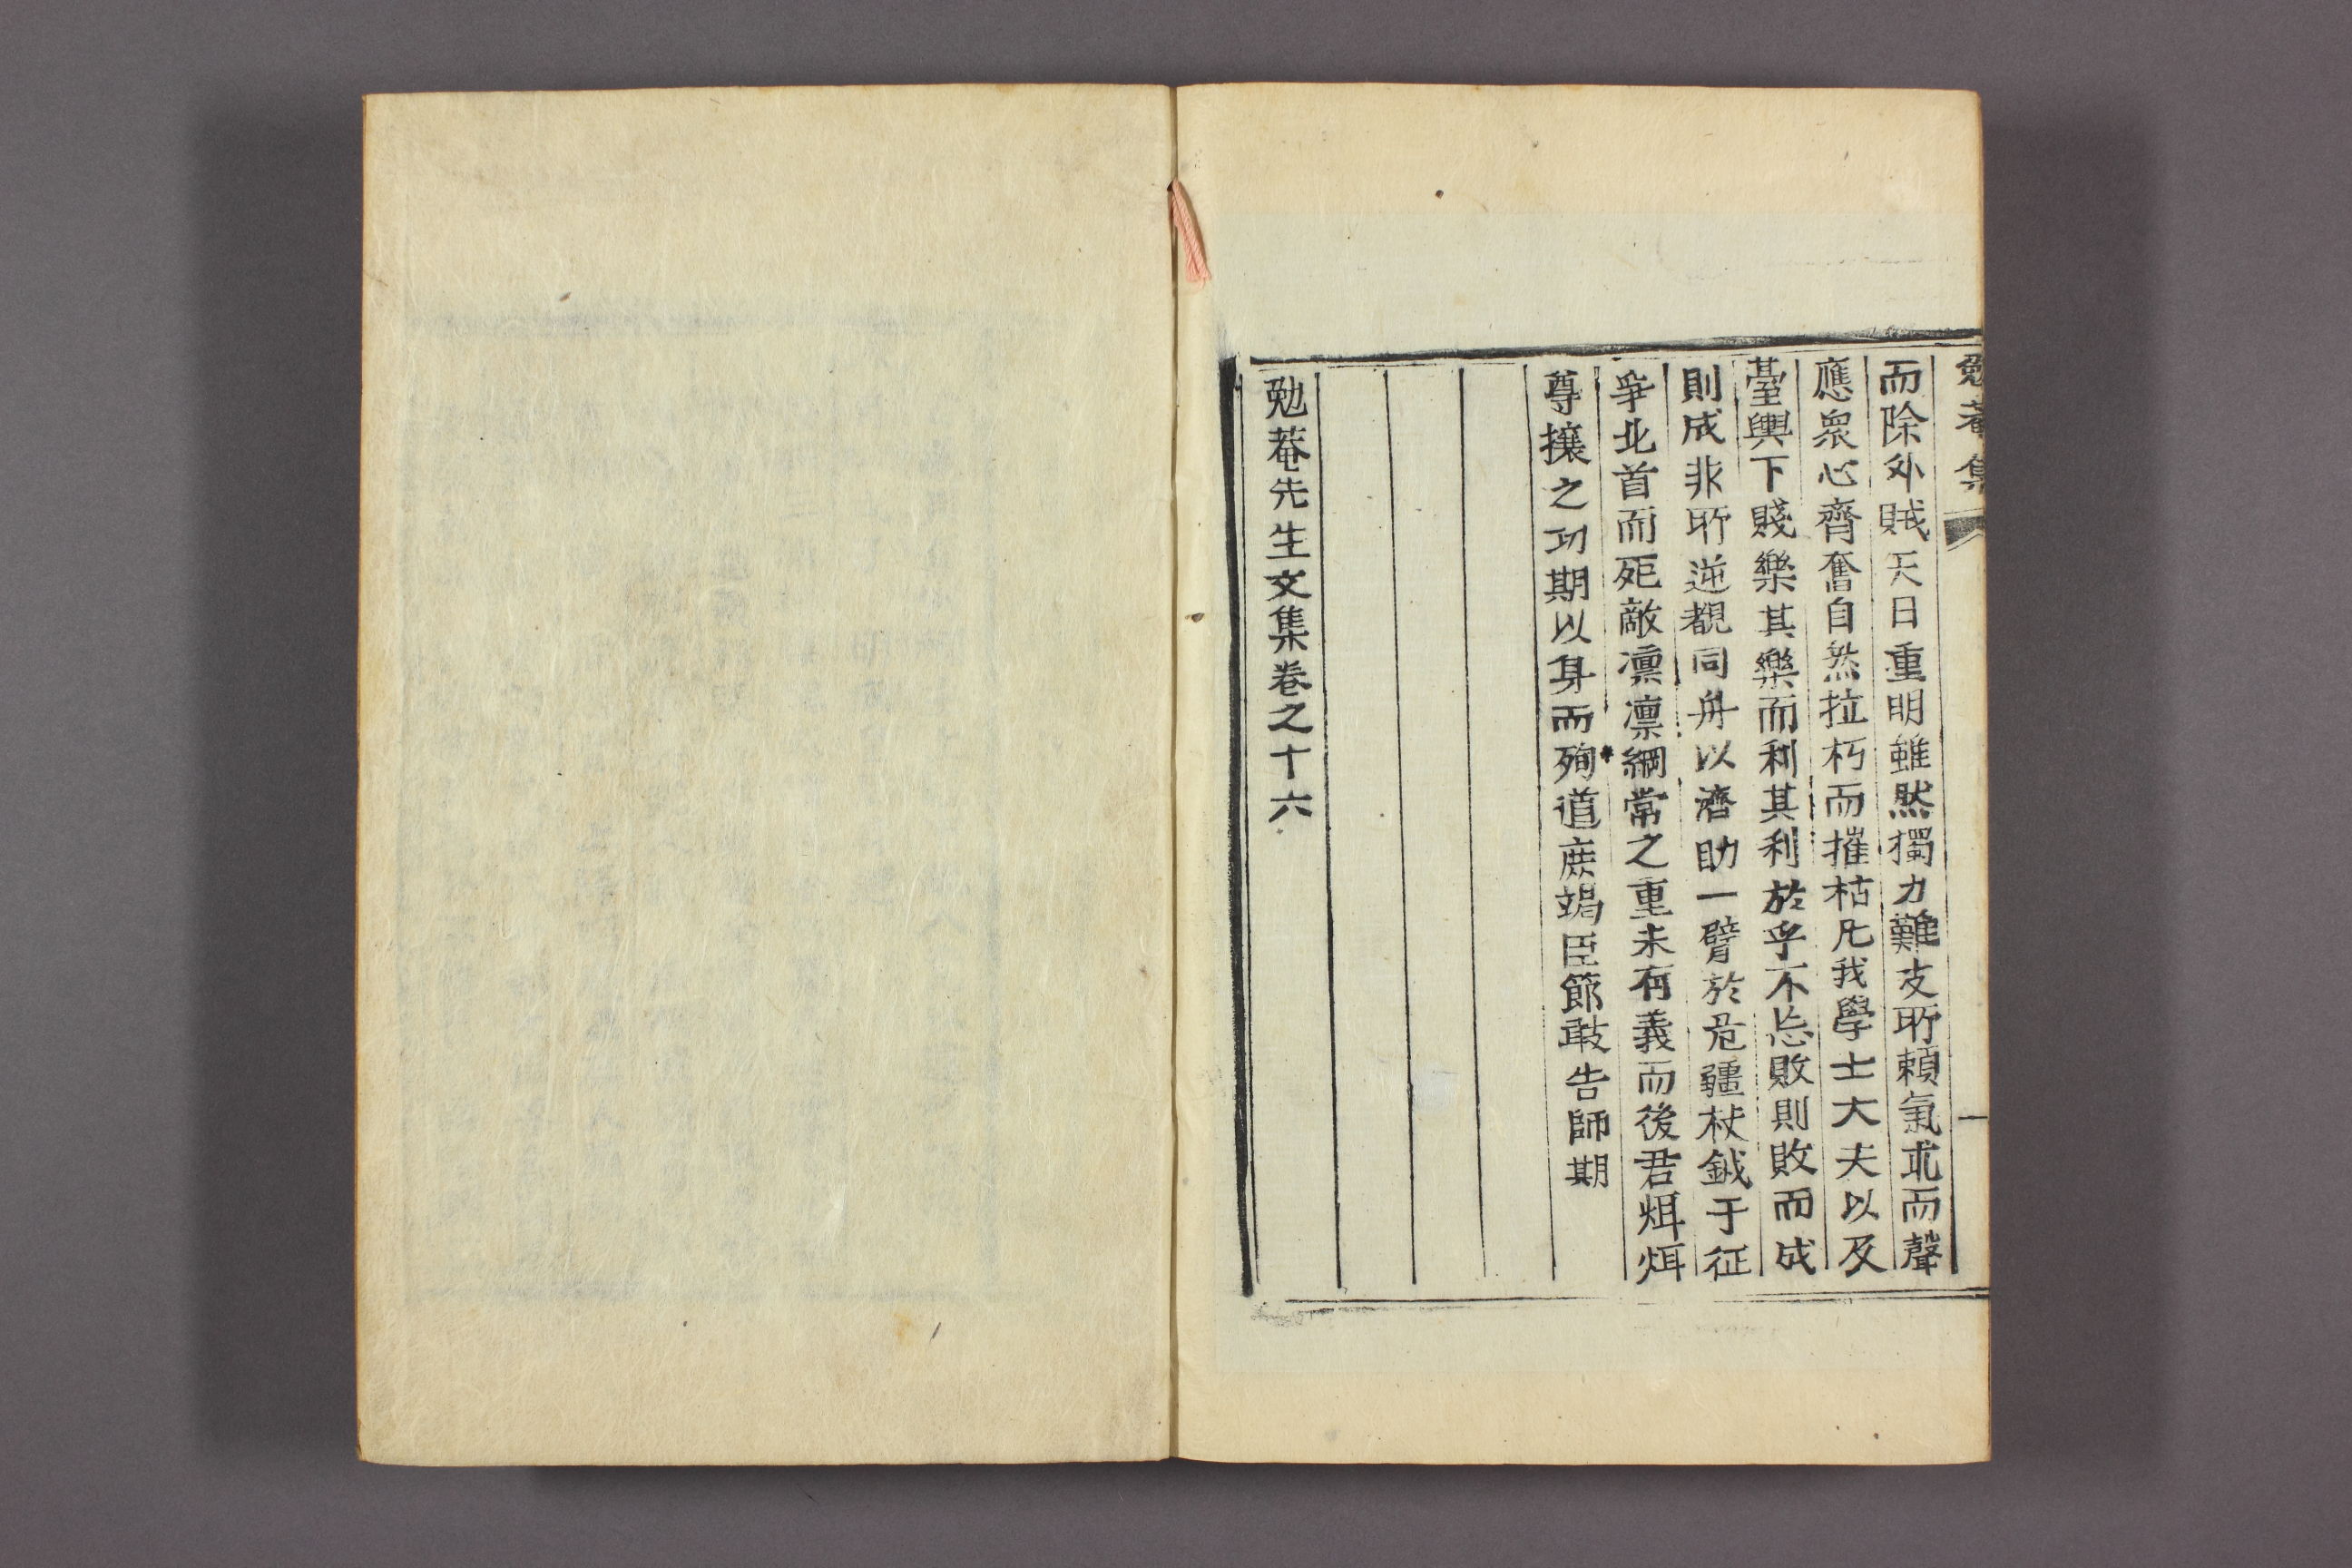 勉菴集
而除外賊天日重明雖然獨力難支所賴氣求而聲
應衆心齊奮自然拉朽而摧枯凡我學士大夫以及
臺輿下賤樂其樂而利其利於乎不忘敗則敗而成
則成非所逆覩同舟以濟助一臂於危疆杖鉞于征
爭北首而死敵凛凛綱常之重未有義而後君烱烱
尊攘之功期以身而殉道庶竭臣節敢告師期
勉菴先生文集卷之十六